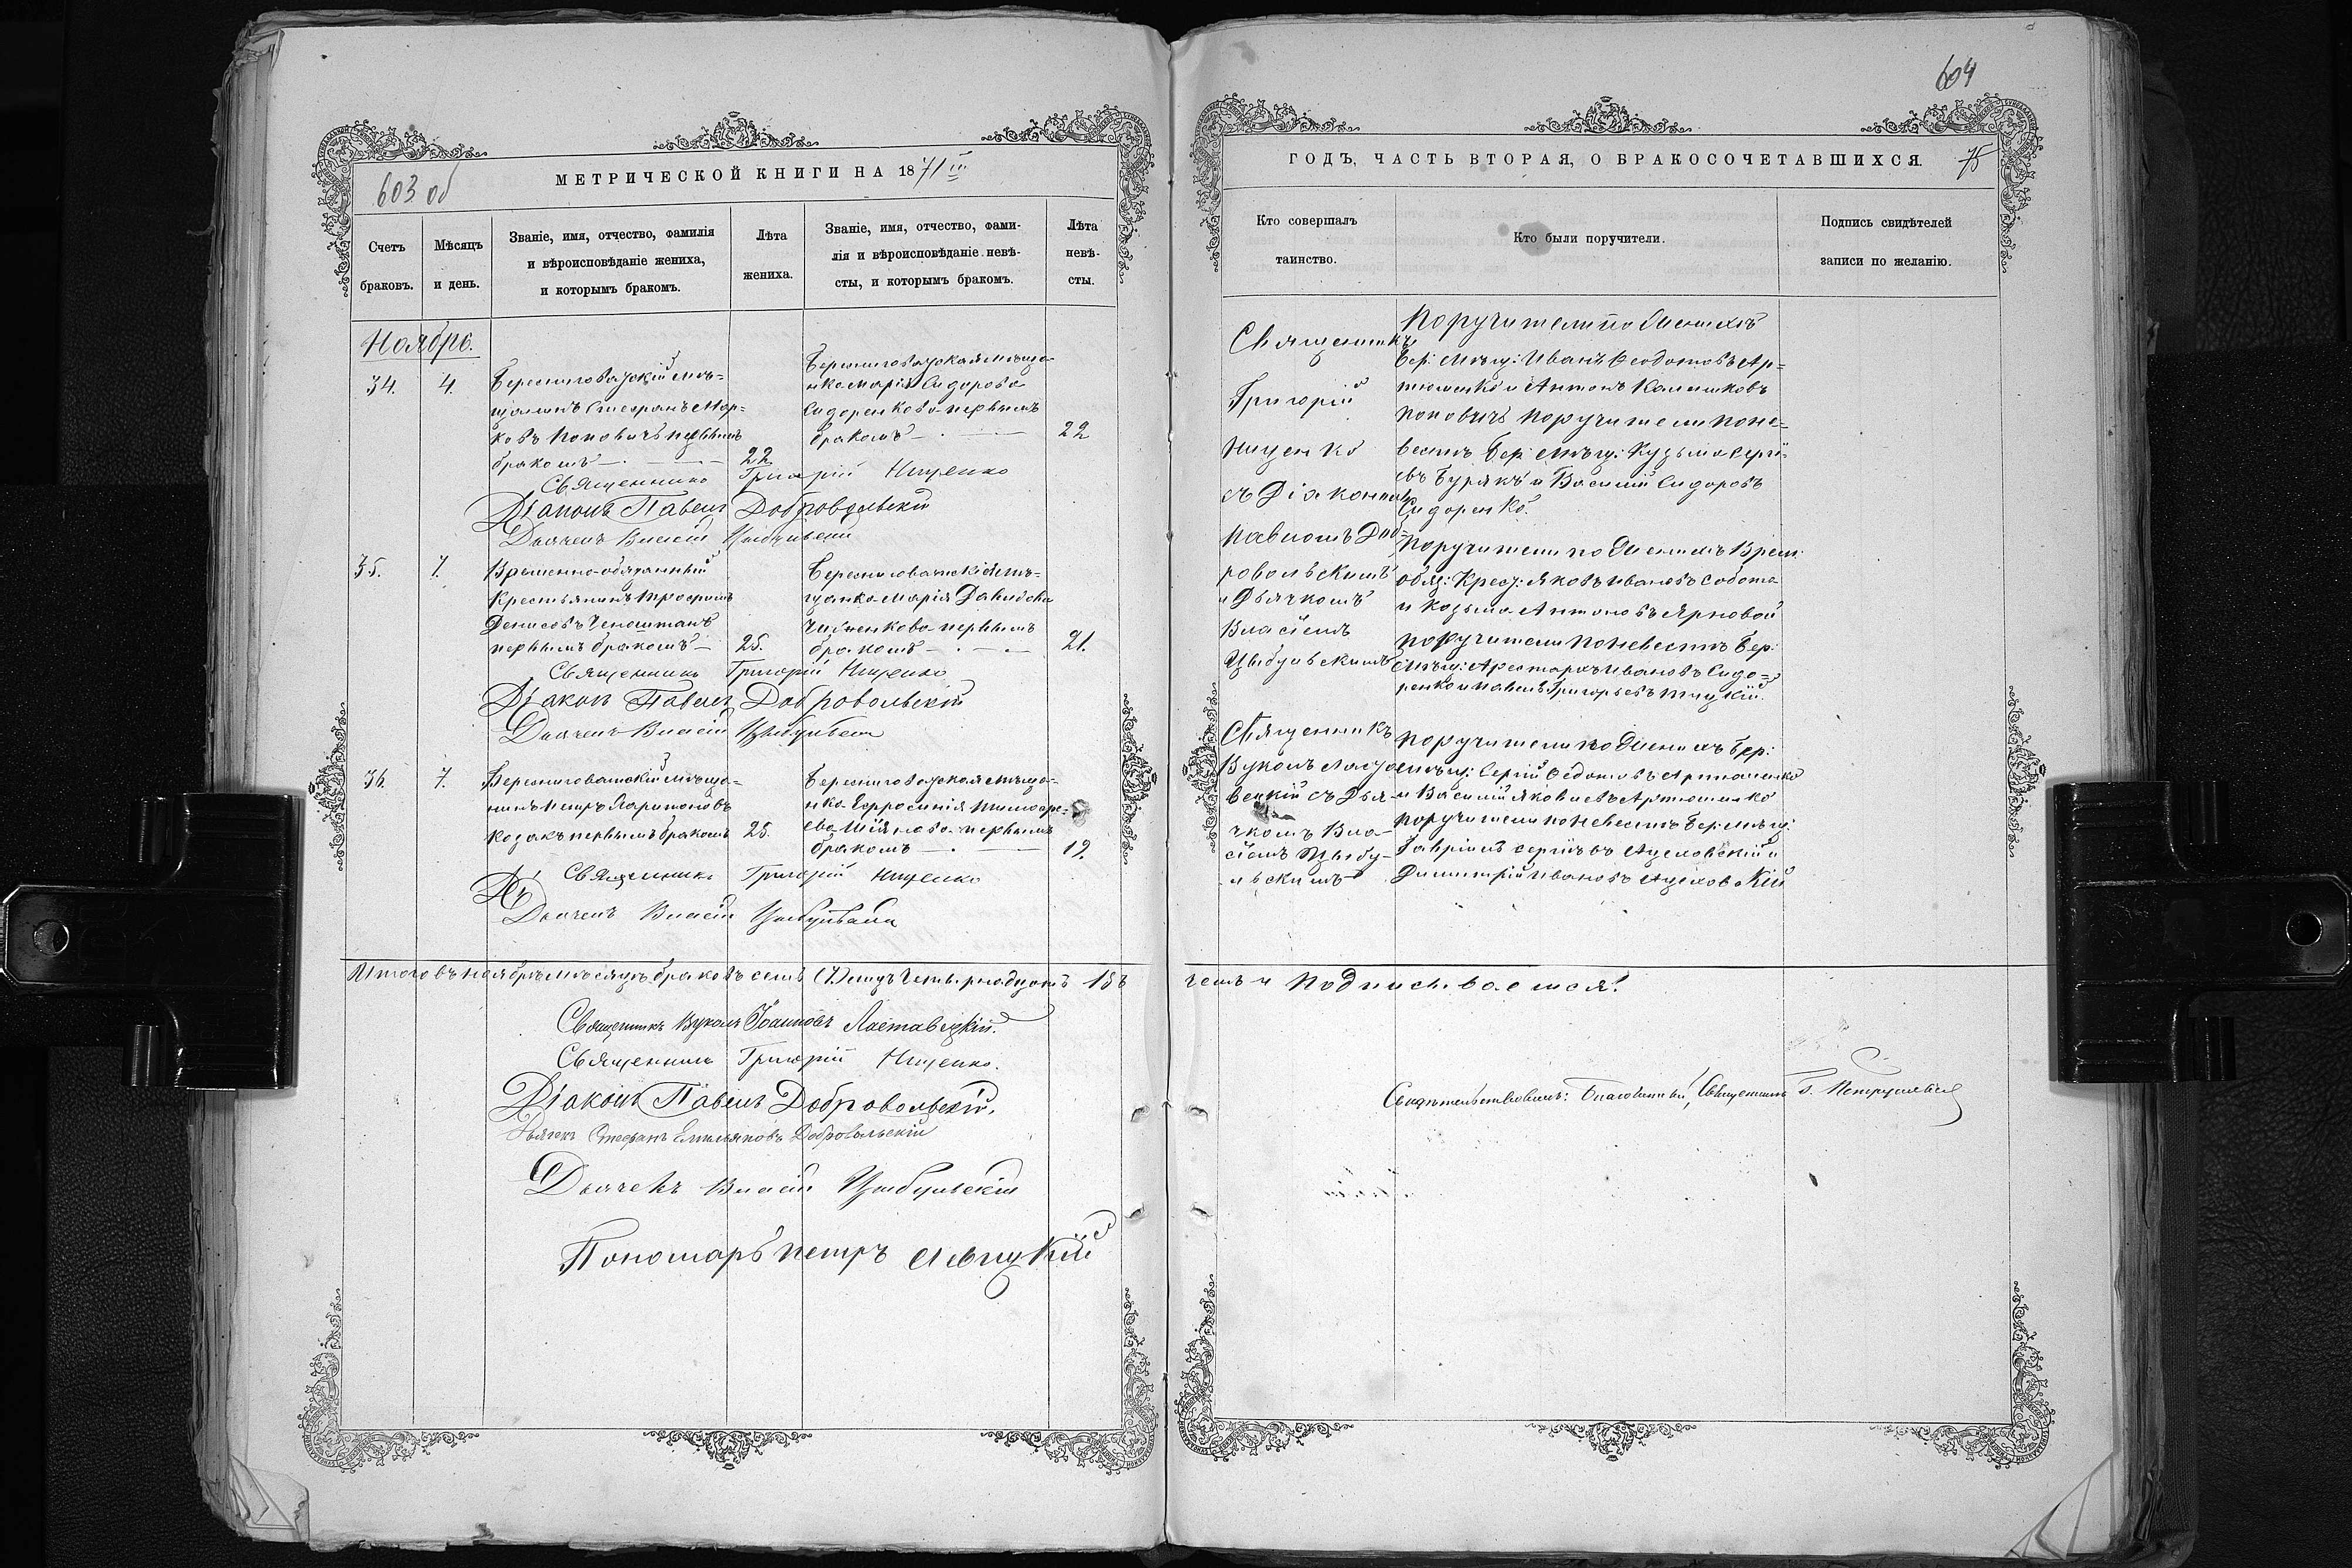 603 об
МЕТРИЧЕСКОЙ КНИГИ НА 1871
Счетъ браковъ.
Мѣсяцъ и день.
Званіе, имя, отчество, фамилія
и вѣроисповѣданіе жениха,
и которымъ бракомъ.
Лѣта жениха.
Званіе, имя, отчество, фами-
лія и вѣроисповѣданіе невѣ-
сты, и которымъ бракомъ.
Лѣта невѣ-
сты.
Ноябрь.
34.
4.
щанинъ Стефанъ Мар=
ковъ Поповичъ первымъ
бракомъ
22
нка Марія Сидорова
Сидоренкова первымъ
бракомъ
22
Священникъ Григорій Нищенко
Діаконъ Павелъ Добровольскій
Дьячекъ Власій Цыбульскій
35.
7.
Временно-обязанный
Крестьянинъ Трофимъ
Денисовъ
первымъ бракомъ
25.
щанка Марія Давидова
первымъ
бракомъ
21.
Священникъ Григорій Нищенко
Діаконъ Павелъ Добровольскій
Дьячекъ Власій Цыбульскій
36.
7.
нинъ Петръ
Козакъ первымъ бракомъ
25.
нка Ефросинія Тимофе=
ева первымъ
бракомъ
19.
Священникъ Григорій Нищенко
Дьячекъ Власій Цыбульскій
Итого въ ноябрѣ мѣсяцѣ браковъ семь (7)
Священникъ Вуколъ Іоанновъ Ластавецкій.
Священникъ Григорій Нищенко.
Діаконъ Павелъ Добровольскій.
Дьячекъ Стефанъ Емельяновъ Добровольскій
Дьячекъ Власій Цыбульскій
Пономарь Петръ
604
ГОДЪ, ЧАСТЬ ВТОРАЯ, О БРАКОСОЧЕТАВШИХСЯ.
75
Кто совершалъ
таинство.
Кто были поручители.
Подпись свидѣтелей
записи по желанію.
Священникъ
Григорій
Нищенко
съ Діакономъ
Павломъ Доб-
ровольскимъ
и Дьячкомъ
Власіемъ
Цыбульскимъ
Поручители по женихѣ
Бер: мѣщ: Иванъ Феодотовъ Ар=
тюшенко и Антонъ Калишковъ
Поповичъ поручители по не=
вестѣ Бер: мѣщ: Кузьма Сергі=
евъ Бурякъ и Василій Сидоровъ
Сидоренко.
Поручители по женихѣ Врем:
обяз: Крест: Яковъ Ивановъ Собота
и Козьма Антоновъ Яровой
поручители по невестѣ Бер:
мѣщ: Аристархъ Ивановъ Сидо=
ренко и Павелъ Григорьевъ
Священникъ
Вуколъ Ласта-
вецкій съ Дья-
чкомъ Вла-
сіемъ Цыбу-
льскимъ
Поручители по женихѣ Бер:
мѣщ: Сергій Федотовъ Артюшенко
и Василій Яковлевъ Артюшенко
поручители по невестѣ Бер: мѣщ:
Гавріилъ Сергіевъ
Димитрій Ивановъ
чемъ и подписываемся:
Свидѣтельствовалъ: Благочинный, Священникъ